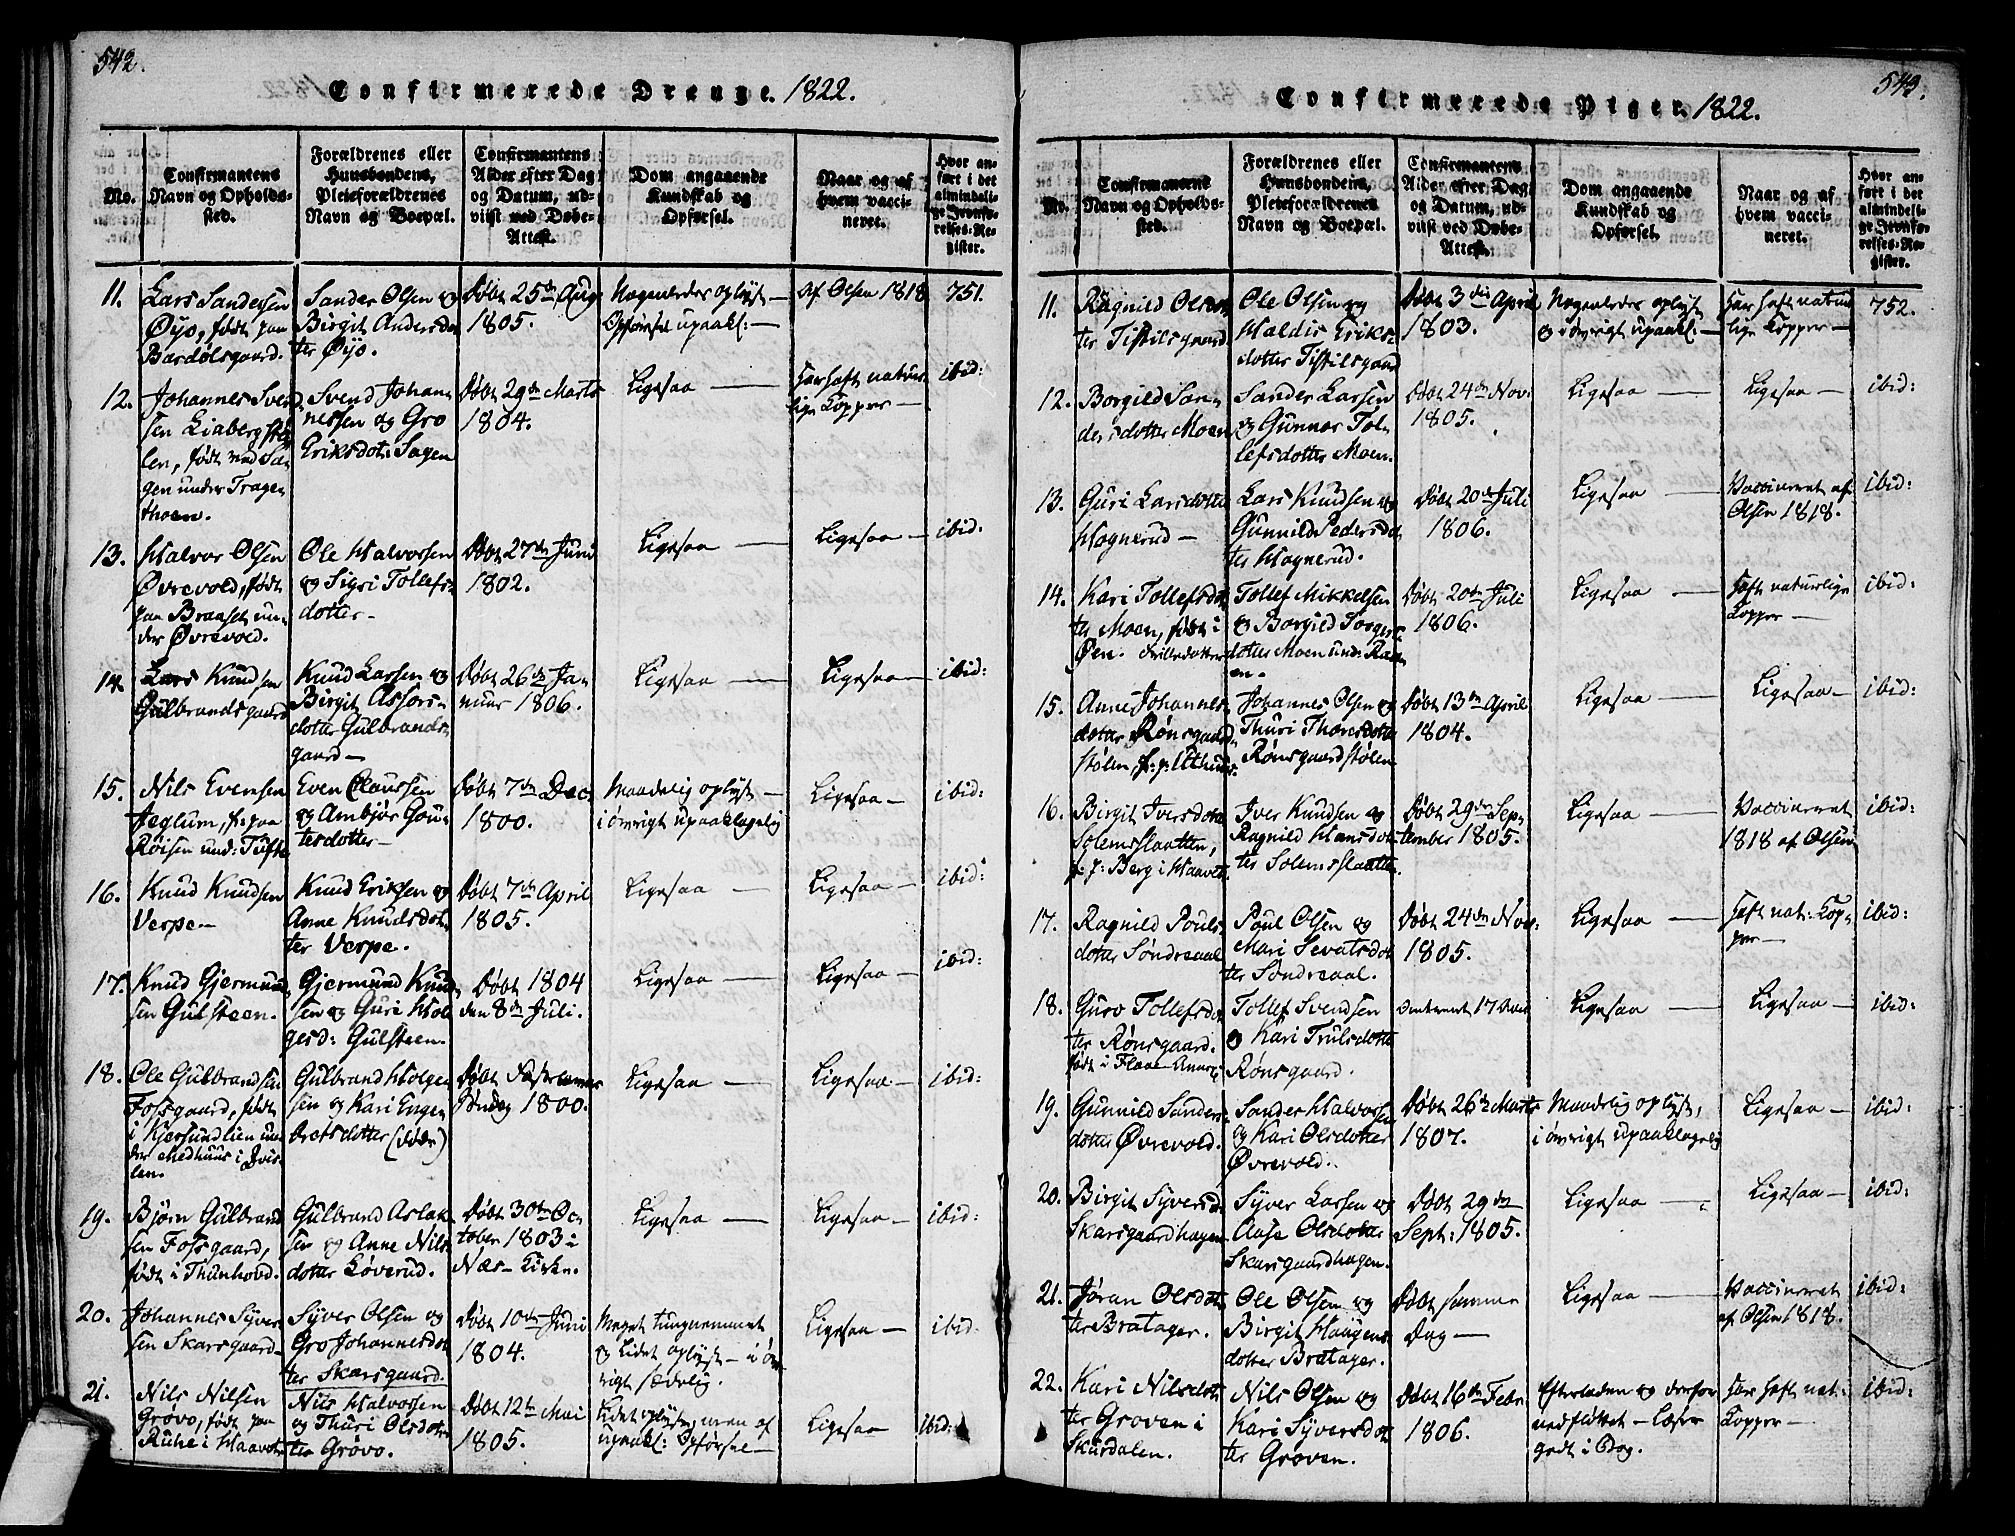 542.
Confirmerede Drenge. 1822.
No.
Confirmantens
Navn og Opholds-
sted.
Forældrenes eller
Huusbondens,
Pleieforældrenes
Navn og Boepæl.
Confirmantens
Alder efter Dag
og Datum, ud-
viist ved Døbe-
Attest.
Dom angaaende
Kundskab og
Opførsel.
Naar og af
hvem vacci-
neret.
Hvor an-
ført i det
almindeli-
ge Jevnfø-
relses-Re-
gister.
11.
Lars Sandersen
Øijo, født paa
Bardølsgaard.
Sander Olsen og
Birgit Andersdot
ter Øijo.
Døbt 25de Aug
1805.
Nogenledes oplyst —
Opførsel upaakl: —
Af Olsen 1818
751.
12.
Johannes Svend
sen Liaberg
len, født ved Sa-
gen under Tragen
thoen.
Svend Johan-
nessen og Gro
Eriksdot: Sagen
Døbt 29de Marts
1804.
Ligesaa —
Har haft natur-
lige Kopper —
ibid:
13.
Halvor Olsen
Øvrevold, født
paa Braaset un-
der Øvrevold.
Ole Halvorsen
og Sigri Tollefs-
dotter —
Døbt 27de Juni
1802.
Ligesaa —
Ligesaa —
ibid:
14.
Lars Knudsen
Gulbrandsgaard
Knud Larsen og
Birgit Assors-
dotter Gulbrands-
gaard —
Døbt 26de Ja-
nuar 1806.
Ligesaa —
Ligesaa —
ibid:
15.
Nils Evensen
Jeglum, f: paa
Røisen und: Tufte
Even Claussen
og Ambjør Gou-
tesdotter —
Døbt 7de Dec.
1800.
Maadelig oplyst —
i øvrigt upaaklagelig
Ligesaa —
ibid:
16.
Knud Knudsen
Verpe —
Knud Eriksen og
Anne Knudsdot-
ter Verpe.
Døbt 7de April
1805.
Ligesaa —
Ligesaa —
ibid:
17.
Knud Gjermund
sen Gulsteen.
Gjermund Knud
sen og Guri Hol-
gersd: Gulsteen.
Døbt 1804
den 8de Juli.
Ligesaa —
Ligesaa —
ibid:
18.
Ole Gulbrandsen
Fossgaard, født
i Kjersundlien un
der Medhuus i Qvis-
len.
Gulbrand Holgen
sen og Kari Engen
bretsdotter (døde)
Døbt Fastelavns
Søndag 1800.
Ligesaa —
Ligesaa —
ibid:
19.
Bjørn Gulbrand
sen Fossgaard,
født i Thunhovd.
Gulbrand Aslak-
sen og Anne Nils
dotter Løverud.
Døbt 30te Oc-
tober 1803 i
Næs-Kirke.
Ligesaa —
Ligesaa —
ibid:
20.
Johannes Syver
sen Skarsgaard —
Syver Olsen og
Gro Johannesdot
ter Skarsgaard.
Døbt 10de Juni
1804.
Meget tungnemmet
og lidet oplyst — i øv-
rigt sædelig.
Ligesaa —
ibid:
21.
Nils Nilsen
Grøvo, født paa
Ruhe i Haavet
Nils Halvorsen
og Thuri Olsdot-
ter Grøvo.
Døbt 12te Mai
1805.
Lidet oplyst, men af
upaakl: Opførsel —
Ligesaa
ibid:
543.
Confirmerede Piger. 1822.
No.
Confirmanerne
Navn og Opholds-
sted.
Forældrenes eller
Huusbondeins,
Pleieforældrenes
Navn og Boepæl.
Confirmantens
Alder efter Dag
og Datum, ud-
viist ved Døbe-
Attest.
Dom angaaende
Kundskab og
Opførsel.
Naar og af
hvem vacci-
neret.
Hvor an-
ført i det
almindeli-
ge Jevnfø-
relses-Re-
gister.
11.
Ragnild Olsdot
ter Tistilsgaard
Ole Olsen og
Haldis Eriks-
dotter Tistilsgaar
Døbt 3die April
1803.
Nogenledes oplyst
og i øvrigt upaakl —
Har haft natur
lige Kopper —
752.
12.
Borgild San-
dersdotter Moen
Sander Larsen
og Gunnor Tol-
lefsdotter Moen.
Døbt 24de Nov:
1805.
Ligesaa —
Ligesaa —
ibid:
13.
Guri Larsdotter
Hognerud —
Lars Knudsen og
Gunnild Pedersdot
ter Hognerud.
Døbt 20de Juli
1806.
Ligesaa —
Vaccineret af
Olsen 1818.
ibid:
14.
Kari Tollefsdot
ter Moen, født i
Øen.
Tollef Mikkelsen
og Borgild
dotter Moen und:
en.
Døbt 20de Juli
1806.
Ligesaa —
Haft naturlige
Kopper —
ibid:
15.
Anne Johannes
dotter Rønsgaard
stølen,
Johannes Olsen og
Thuri Thoresdotter
Rønsgaardstølen
Døbt 13de April
1804.
Ligesaa —
Ligesaa —
ibid:
16.
Birgit Iversdotter
Solemsslaatten,
f: p: Berg i Haavet.
Iver Knudsen og
Ragnild Hansdot-
ter Solemsslaatten
Døbt 29de Sep-
tember 1805.
Ligesaa —
Vaccineret
1818 af Olsen
ibid:
17.
Ragnild Pouls-
dotter Søndreaal
Poul Olsen og
Mari Sevatsdot
ter Søndreaal.
Døbt 24de Nov:
1805.
Ligesaa —
Haft nat: Kop-
per —
ibid:
18.
Guro Tollefsdot
ter Rønsgaard.
født i
Tollef Svendsen
og Kari Trulsdotter
Rønsgaard.
Ligesaa —
Ligesaa —
ibid:
19.
Gunnild Sanders
dotter Øvrevold.
Sander Halvorsen
og Kari Olsdotter
Øvrevold.
Døbt 26de Marts
1807.
Maadelig oplyst,
i øvrigt upaaklagelig
Ligesaa —
ibid:
20.
Birgit Syversd:
Skarsgaardhagen
Syver Larsen og
Aase Olsdotter
Skarsgaardhagen.
Døbt 29de
Sept: 1805.
Ligesaa —
Ligesaa —
ibid:
21.
Jøran Olsdot-
ter Bratager.
Ole Olsen og
Birgit Haagens
dotter Bratager.
Døbt samme
Dag —
Ligesaa —
Vaccineret
af Olsen 1818.
ibid:
22.
Kari Nilsdot-
ter Groven i
Skurdalen.
Nils Olsen og
Kari Syversdot
ter Groven.
Døbt 16de Febr
1806.
Efterladen og derfor
nedfløttet — Læser
godt i Bog.
Har haft nat:
Kopper —
ibid: